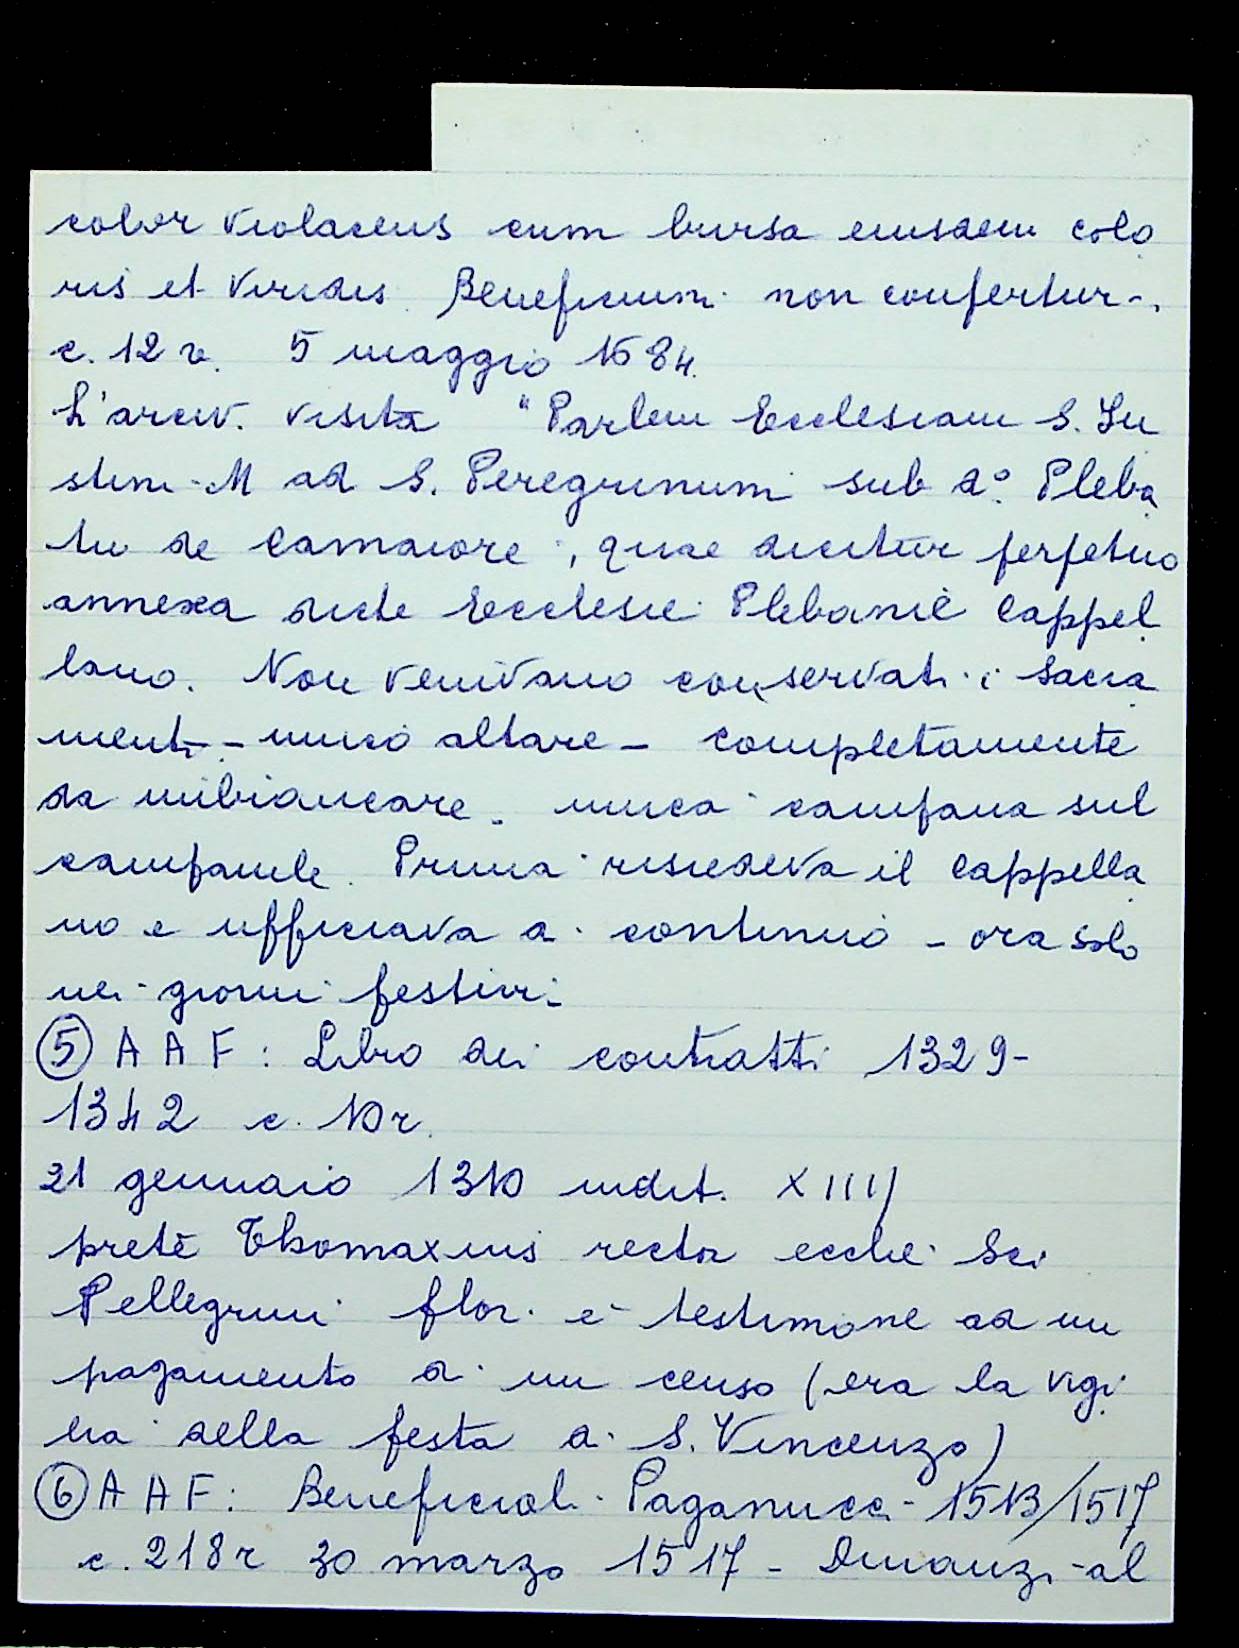 color violaceus cum bursa eiusdem colo
ris et viridis. Beneficium non confertur -.
c. 12 v. 5 maggio 1684.
L'arciv. visita "Parlem Ecclesiam S. Iu
stini M ad S. Peregrinum sub d.° Pleba
tu de Camaiore, quae dicitur perpetuo
annexa dicte Ecclesie Plebanie Cappel
lano. Non venivano conservati i Sacra
menti - unico altare - completamente
da imbiancare. unica campana sul
campanile. Prima risiedeva il Cappella
no e ufficiava di continuo - ora solo
nei giorni festivi.
⑤ A A F : Libro dei contratti 1329-
1342 c. 10 r.
21 gennaio 1310 indit. XIIII
prete Thomaxius rector ecclie Sci
Pellegrini flor. è testimone ad un
pagamento di un censo (era la vigi
lia della festa di S. Vincenzo)
⑥ A A F : Beneficiali Paganucci - 1513/1517
c. 218 r 30 marzo 1517 - Dinanzi al